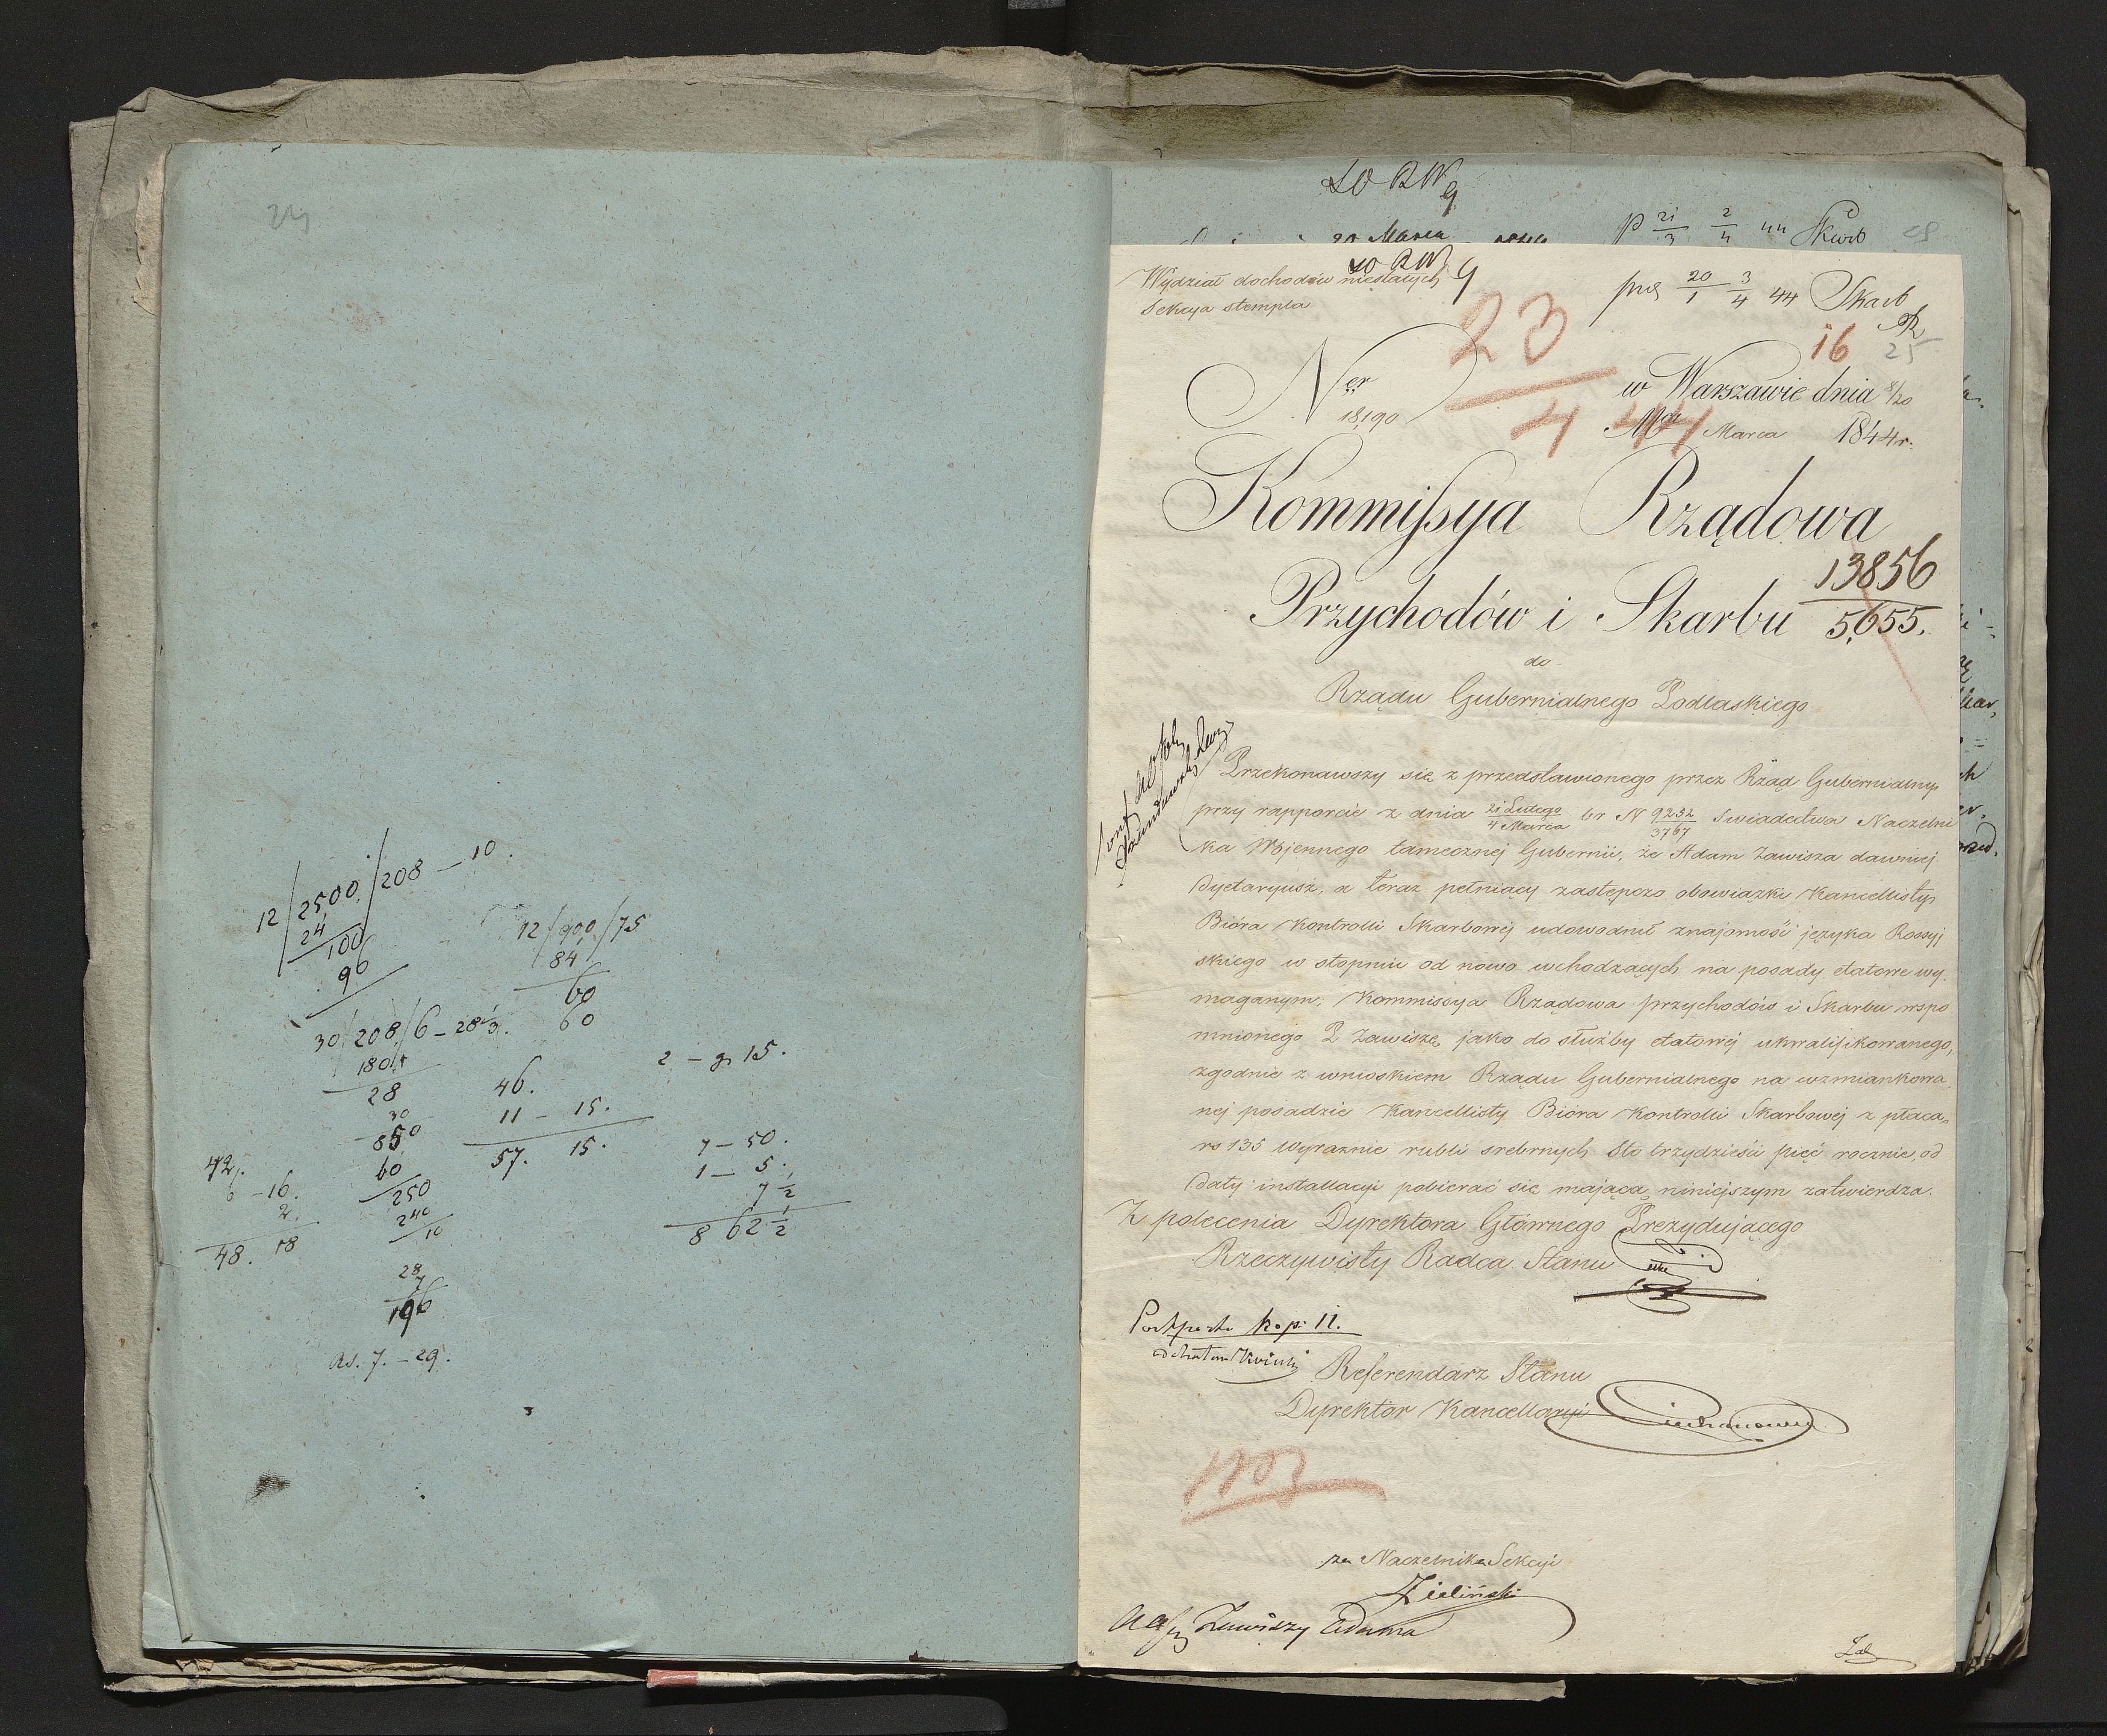 24
12 / 2500 / 208 – 10.
24
100
96
12 / 900 / 75
84
60
60
30 / 208 / 6 – 28 1/3.
180
28
30
60
250
240
10
28
7
196
Rs. 7. – 29.
46.
11 – 15.
57. 15.
2 – g 15.
7 – 50.
1 – 5.
7 1/2
8 62 1/2
42.
6 – 16.
2.
48. 18
20 Marca
Skarb
Wydział dochodów niestałych
Sekcya stempla
20/1 3/4 44 Skarb
23
4 44
16
25
Ner
18,190
w Warszawie dnia 8/20
Mca Marca 1844 r.
Kommissya Rządowa
Przychodów i Skarbu
13856
5,655.
do
Rządu Gubernialnego Podlaskiego
Przekonawszy się z przedstawionego przez Rząd Gubernialny
przy rapporcie z dnia 21 Lutego/4 Marca br N 9232/3767 Swiadectwa Naczelni
ka Wojennego tamecznej Gubernii, że Adam Zawisza dawniej
Dyetaryusz, a teraz pełniący zastępczo obowiązki Kancellisty
Bióra Kontrolli Skarbowej udowodnił znajomość języka Rossyj
skiego w stopniu od nowo wchodzących na posady etatowe wy
maganym, Kommissya Rządowa przychodów i Skarbu wspo
mnionego P Zawiszę jako do służby etatowej ukwalifikowanego,
zgodnie z wnioskiem Rządu Gubernialnego na wzmiankowa
nej posadzie Kancellisty Bióra Kontrolli Skarbowej z płacą
rs 135 wyraznie rubli srebrnych Sto trzydzieści pięć rocznie, od
daty installacyi pobierać się mającą niniejszym zatwierdza.
Z polecenia Dyrektora Głównego Prezydującego
Rzeczywisty Radca Stanu
kop: 11.
Referendarz Stanu
Dyrektor Kancellaryi
za Naczelnika Sekcyi
Zieliński
Zawiszy Adama